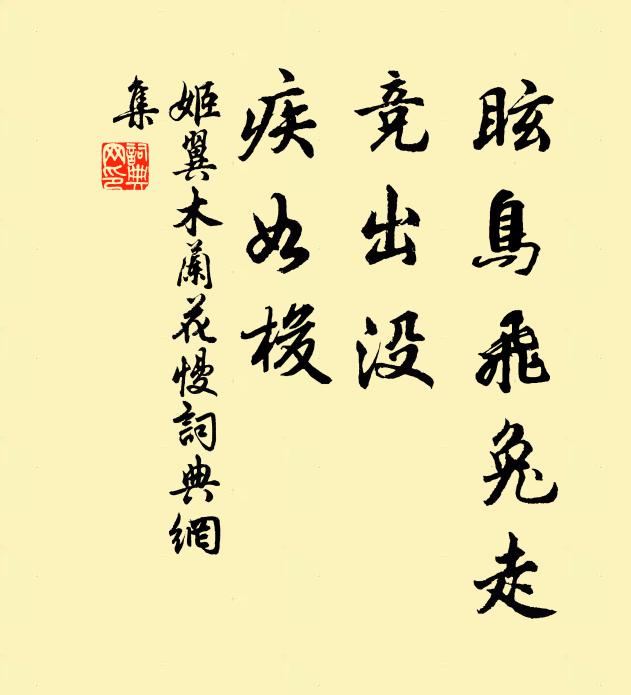 眩鳥飛兔走
竞出没
疾如梭
姬翼木蘭花慢詞典網
集
詞典
网印